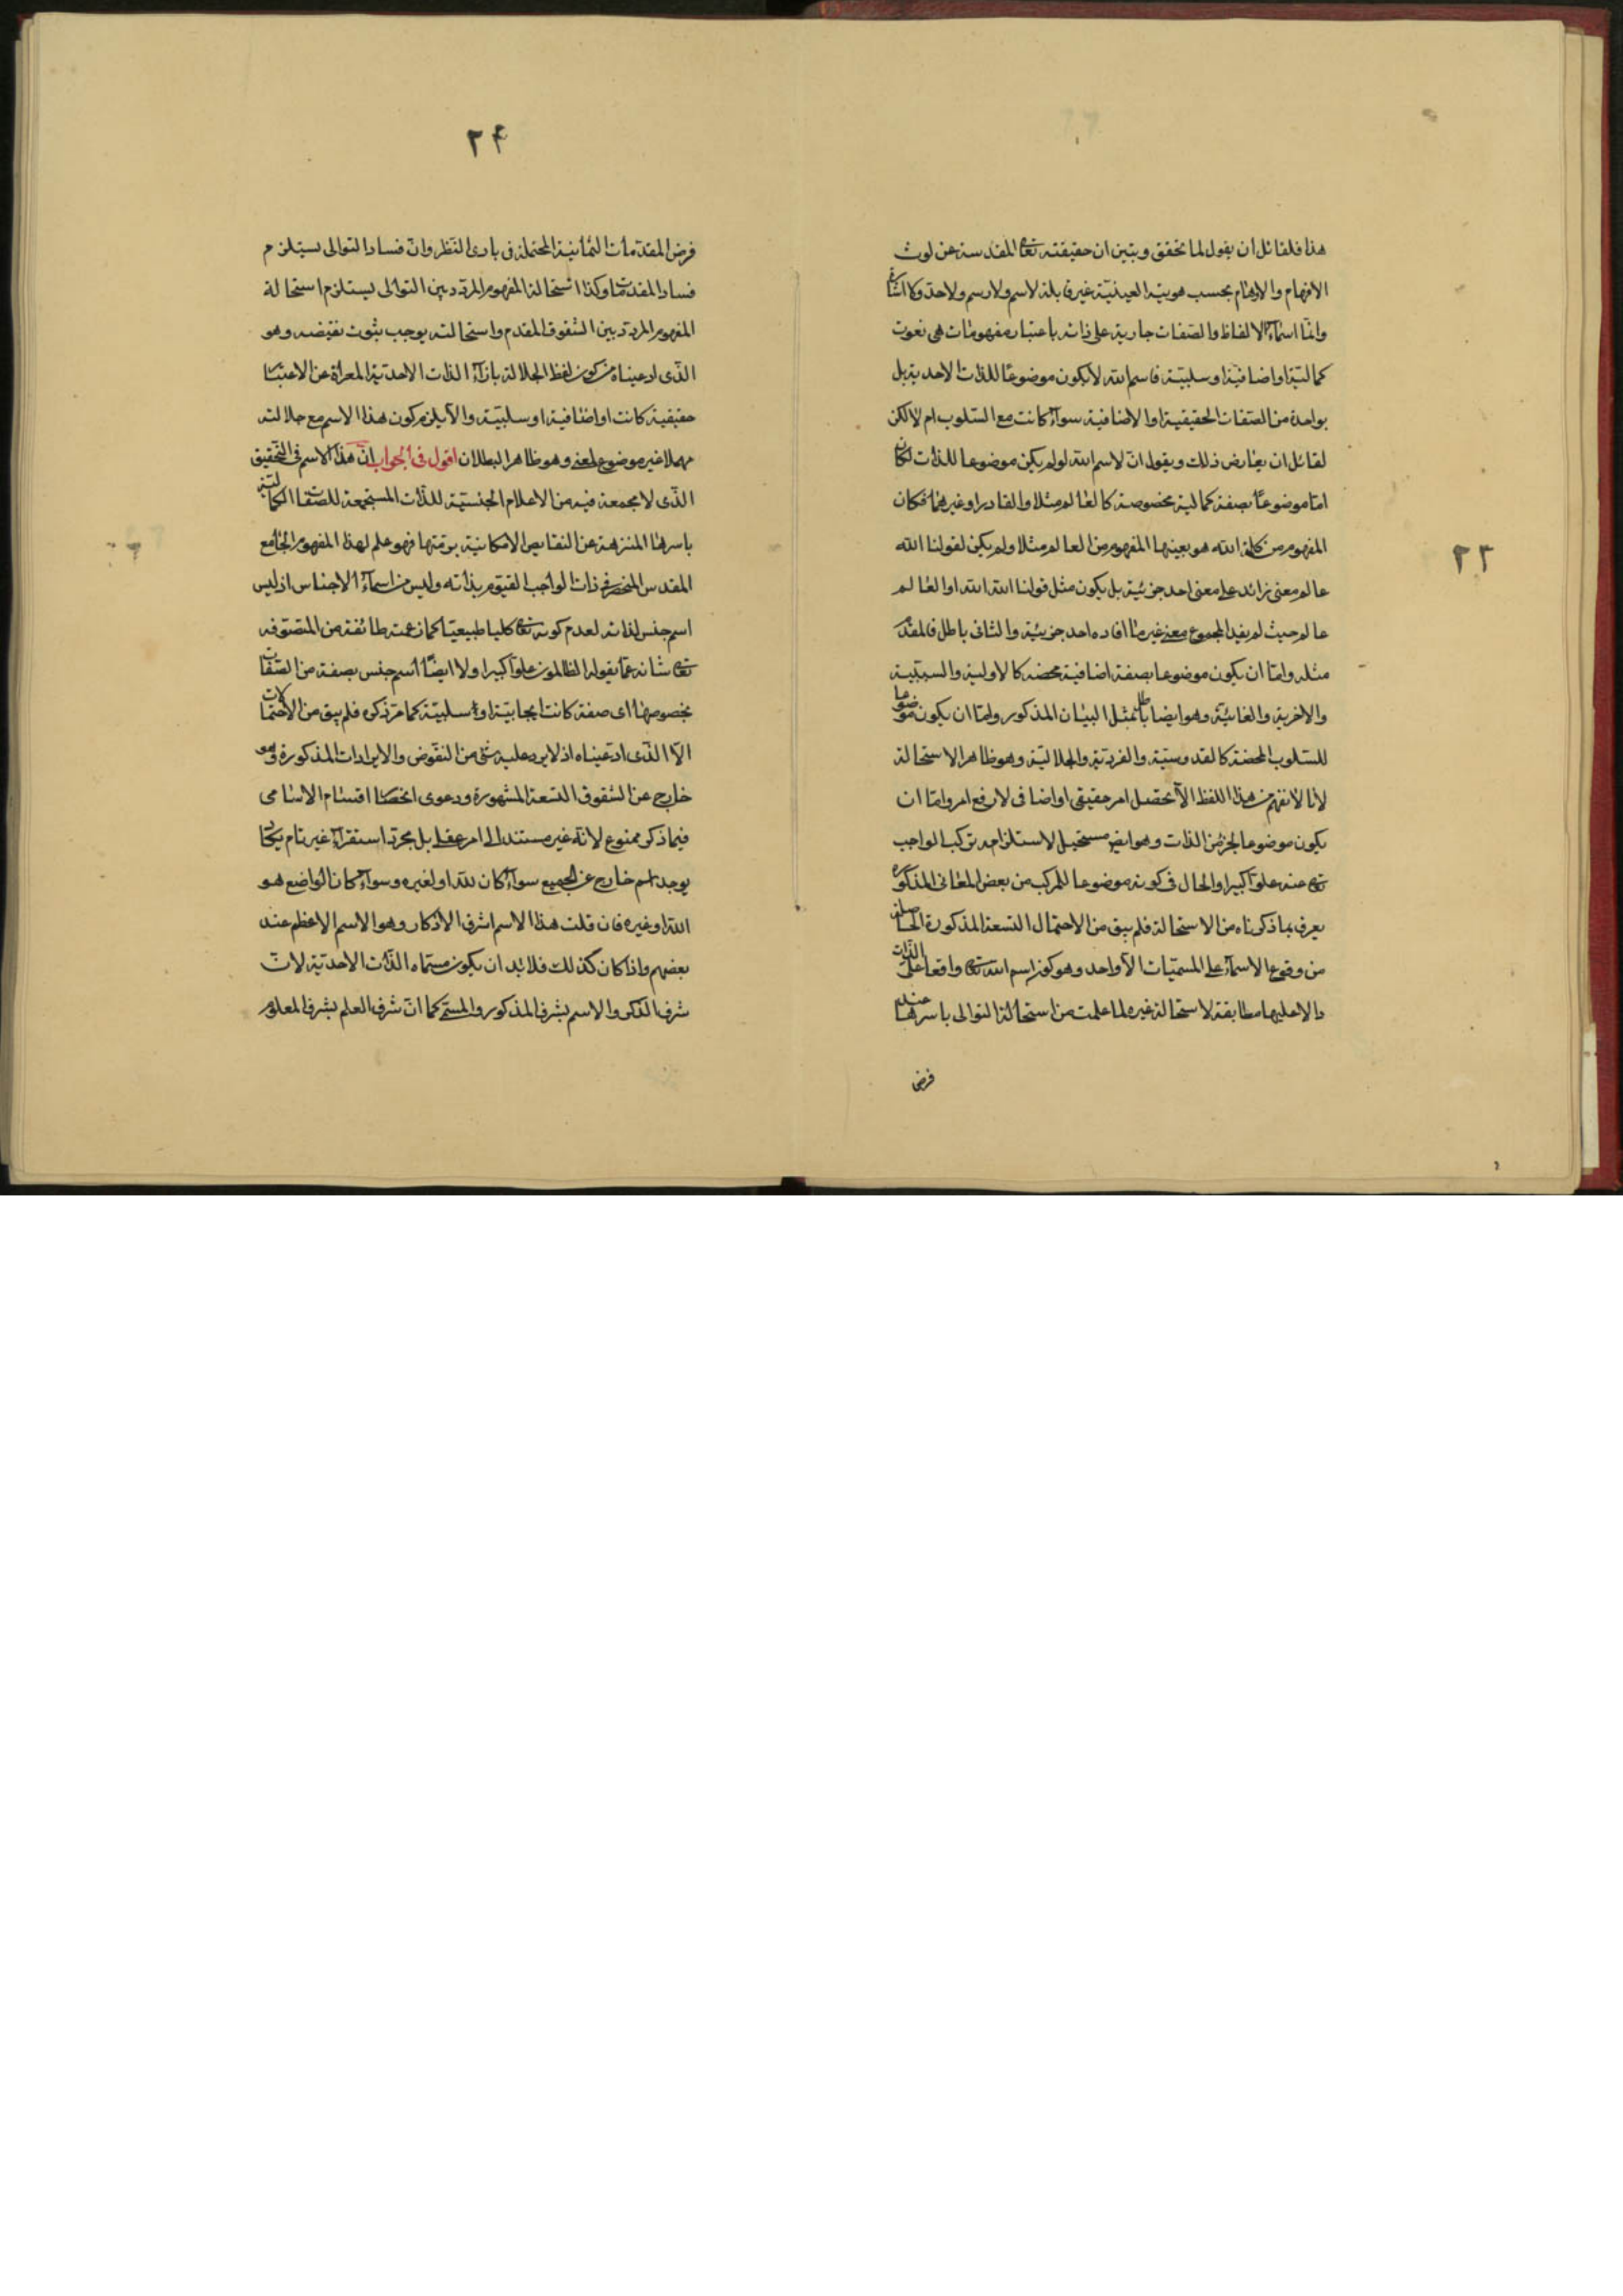 ٢٣
هذا فلقائل ان يقول لما تحقق وتبين ان حقيقته تعالى المقدسة عن لوث
الافهام والاوهام بحسب هويته العينية غير قابلة لاسم ولا رسم ولا حد ولا اشارة
وانما اسماء الالفاظ والصفات جارية على ذاته باعتبار مفهومات هى نعوت
كمالية او اضافية او سلبية فاسم الله لا يكون موضوعا للذات الاحدية بل
بواحدة من الصفات الحقيقية او الاضافية سواء كانت مع السلوب ام لا لكن
لقائل ان يعارض ذلك ويقول ان لاسم الله لو لم يكن موضوعا للذات لكان
اما موضوعا بصفة كمالية مخصوصة كالعالم مثلا والقادر او غيرهما فكان
المفهوم من كلمة الله هو بعينها المفهوم من العالم مثلا ولم يكن لقولنا الله
عالم معنى زائد على معنى احد جزئية بل يكون مثل قولنا الله الله او العالم
عالم حيث لم يفد المجموع معنى غير ما افاده احد جزئية والثانى باطل فالمقدم
مثله واما ان يكون موضوعا بصفة اضافية محضه كالاولية والسببية
والاخرية والغائية وهو ايضا باطل بمثل البيان المذكور واما ان يكون موضوعا
للسلوب المحضة كالقدوسية والفردية والجلالية وهو ظاهر الاستحالة
لانا لا نفهم من هذا اللفظ الا تحصل امر حقيقى او اضافى لا رفع امر واما ان
يكون موضوعا لجزء من الذات وهو ايض مستحيل لاستلزامه تركب الواجب
تعالى عنه علوا كبيرا والحال فى كونه موضوعا للمركب من بعض المعانى المذكورة
يعرف بما ذكرناه من الاستحالة فلم يبق من الاحتمال التسعة المذكورة الحاصلة
من وقوع الاسماء على المسميات الا واحد وهو كون اسم الله تعالى واقعا على الذات
دالا عليها مطابقة لاستحالة غيره لما علمت من استحالة التوالى باسرها عند
فرض
٢۴
فرض المقدمات الثمانية المحتملة فى بادى النظر وان فساد التوالى يستلزم
فساد المقدمات وكذا استحالة المفهوم المردد بين التوالى يستلزم استحالة
المفهوم المردد بين الشقوق المقدم واستحالته يوجب ثبوت نقيضه وهو
الذى ادعيناه من كون لفظ الجلالة بازاء الذات الاحدية المعراة عن الاعتبارات
حقيقية كانت او اضافية او سلبية والا يلزم كون هذا الاسم مع جلالته
مهملا غير موضوع لمعنى وهو ظاهر البطلان اقول فى الجواب ان هذا الاسم فى التحقيق
الذى لا مجمعة فيه من الاعلام الجنسية للذات المستجمعة للصفات الكمالية
باسرها المنزهة عن النقايص الامكانية برمتها فهو علم لهذا المفهوم الجامع
المقدس المنحصر فى ذات الواجب القيوم بذاته وليس من اسماء الاجناس اذ ليس
اسم جنس لذاته لعدم كونه تعالى كليا طبيعيا كما زعمت طائفة من المتصوفه
تعالى شانه عما يقوله الظالمون علوا كبيرا ولا ايضا اسم جنس بصفة من الصفات
بخصوصها اى صفة كانت ايجابية او سلبية كما مر ذكره فلم يبق من الاحتمالات
الا الذى ادعيناه اذ لا يرد عليه شئ من النقوض والايرادات المذكورة وهو
خارج عن الشقوق التسعة المشهورة ودعوى انحصار اقسام الاسامى
فيما ذكر ممنوع لانه غير مستند الى امر عقلى بل مجرد استقراء غير تام يكاد
يوجد اسم خارج عن الجميع سواء كان لله او لغيره وسواء كان الواضع هو
الله او غيره فان قلت هذا الاسم اشرف الاذكار وهو الاسم الاعظم عند
بعضهم واذا كان كذلك فلا بد ان يكون مسماه الذات الاحدية لان
شرف الذكر والاسم بشرف المذكور والمسمى كما ان شرف العلم بشرف المعلوم